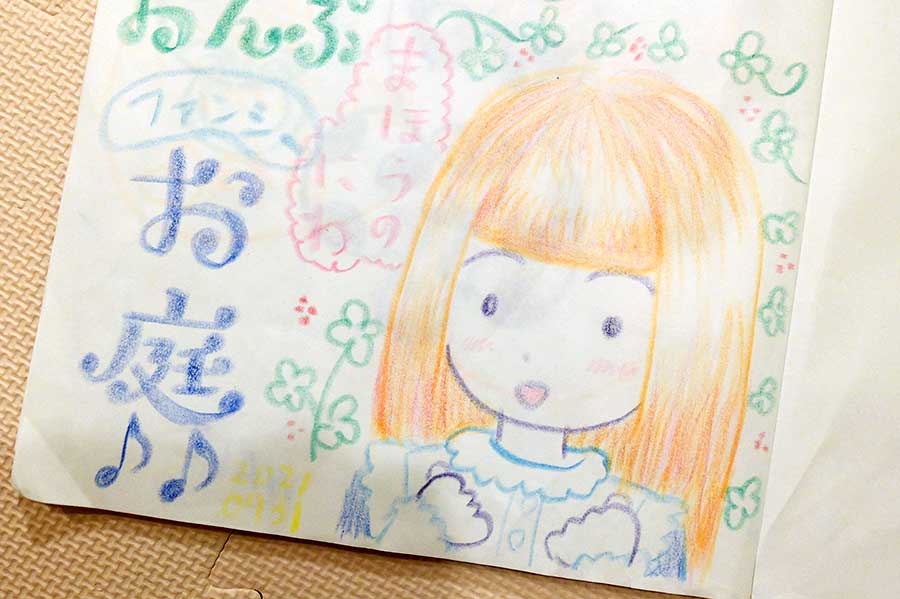 おんぷ
ファンシー
まほうの
にわ
お庭
2021